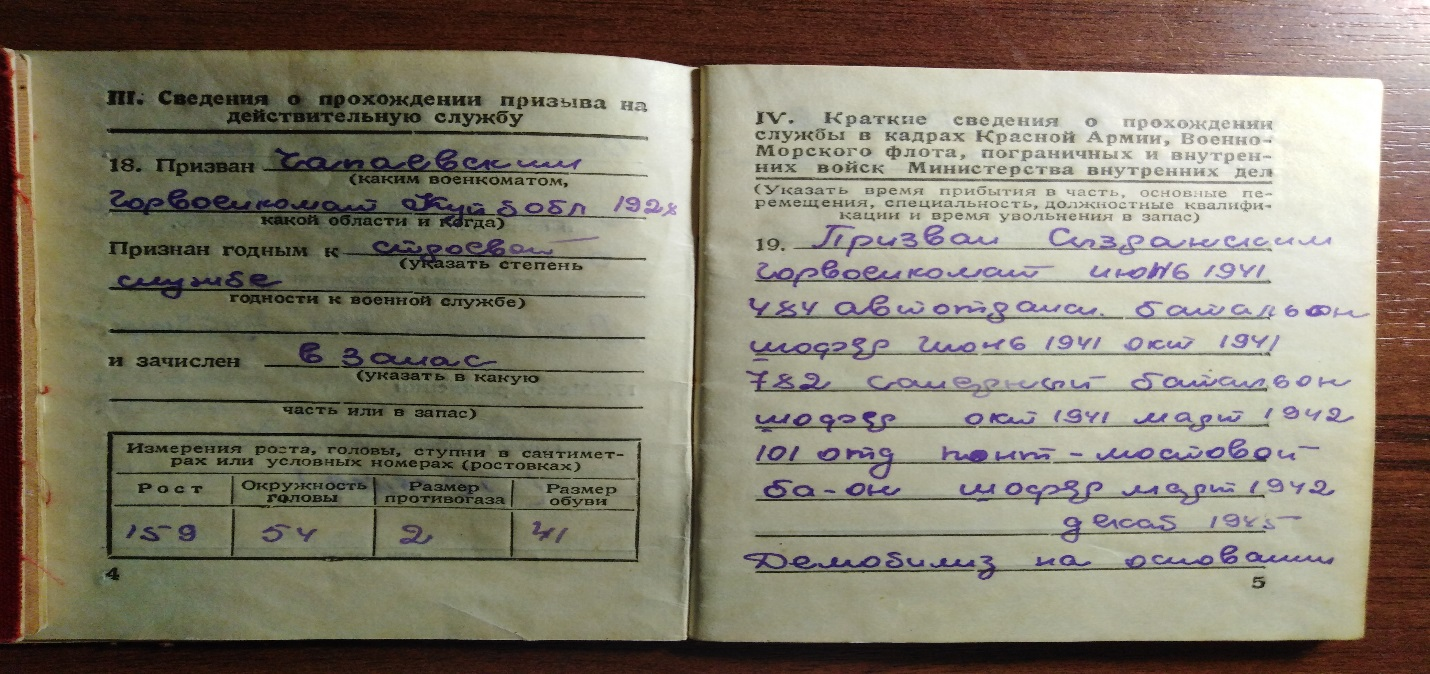 III. Сведения о прохождении призыва на
действительную службу
18. Призван Чапаевским
(каким военкоматом,
Горвоенкомат Куйб обл 192
какой области и когда)
Признан годным к строевой
(указать степень
службе
годности к военной службе)
и зачислен в запас
(указать в какую
часть или в запас)
Измерения роста, головы, ступни в сантимет-
рах или условных номерах (ростовках)
Рост Окружность головы Размер противогаза Размер обуви
159 54 2 41
4
IV. Краткие сведения о прохождении
службы в кадрах Красной Армии, Военно-
Морского флота, пограничных и внутрен-
них войск Министерства внутренних дел
(Указать время прибытия в часть, основные пе-
ремещения, специальность, должностные квалифи-
кации и время увольнения в запас)
19. Призван Сызранским
Горвоенкомат июнь 1941
484 батальон
шофер июнь 1941 окт 1941
782 батальон
шофер окт 1941 март 1942
101 отд понт-мостовой
ба-он шофер март 1942
декаб 1945
Демобилиз на основании
5